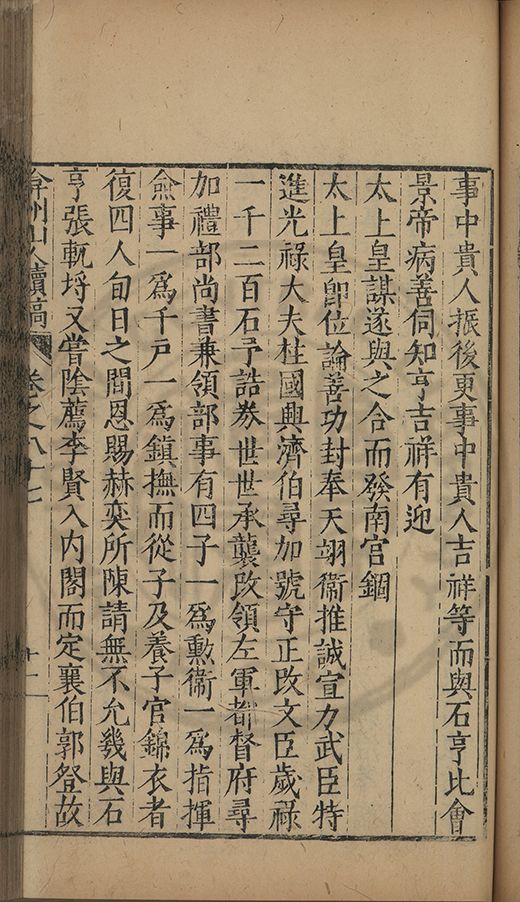 事中貴人振後更事中貴人吉祥等而與石亨比會
景帝病善伺知亨吉祥有迎
太上皇謀遂與之合而發南宫錮
太上皇卽位論善功封奉天翊衞推誠宣力武臣特
進光祿大夫柱國興濟伯尋加號守正攺文臣歲祿
一千二百石予誥券世世承襲攺領左軍都督府尋
加禮部尚書兼領部事有四子一爲勲衞一爲指揮
僉事一爲千戸一爲鎮撫而從子及養子官錦衣者
復四人旬日之間恩賜赫奕所陳請無不允㡬與石
亨張軏埒又嘗陰薦李賢入内閣而定襄伯郭登故
弇州山人續稿 卷之八十七 十一